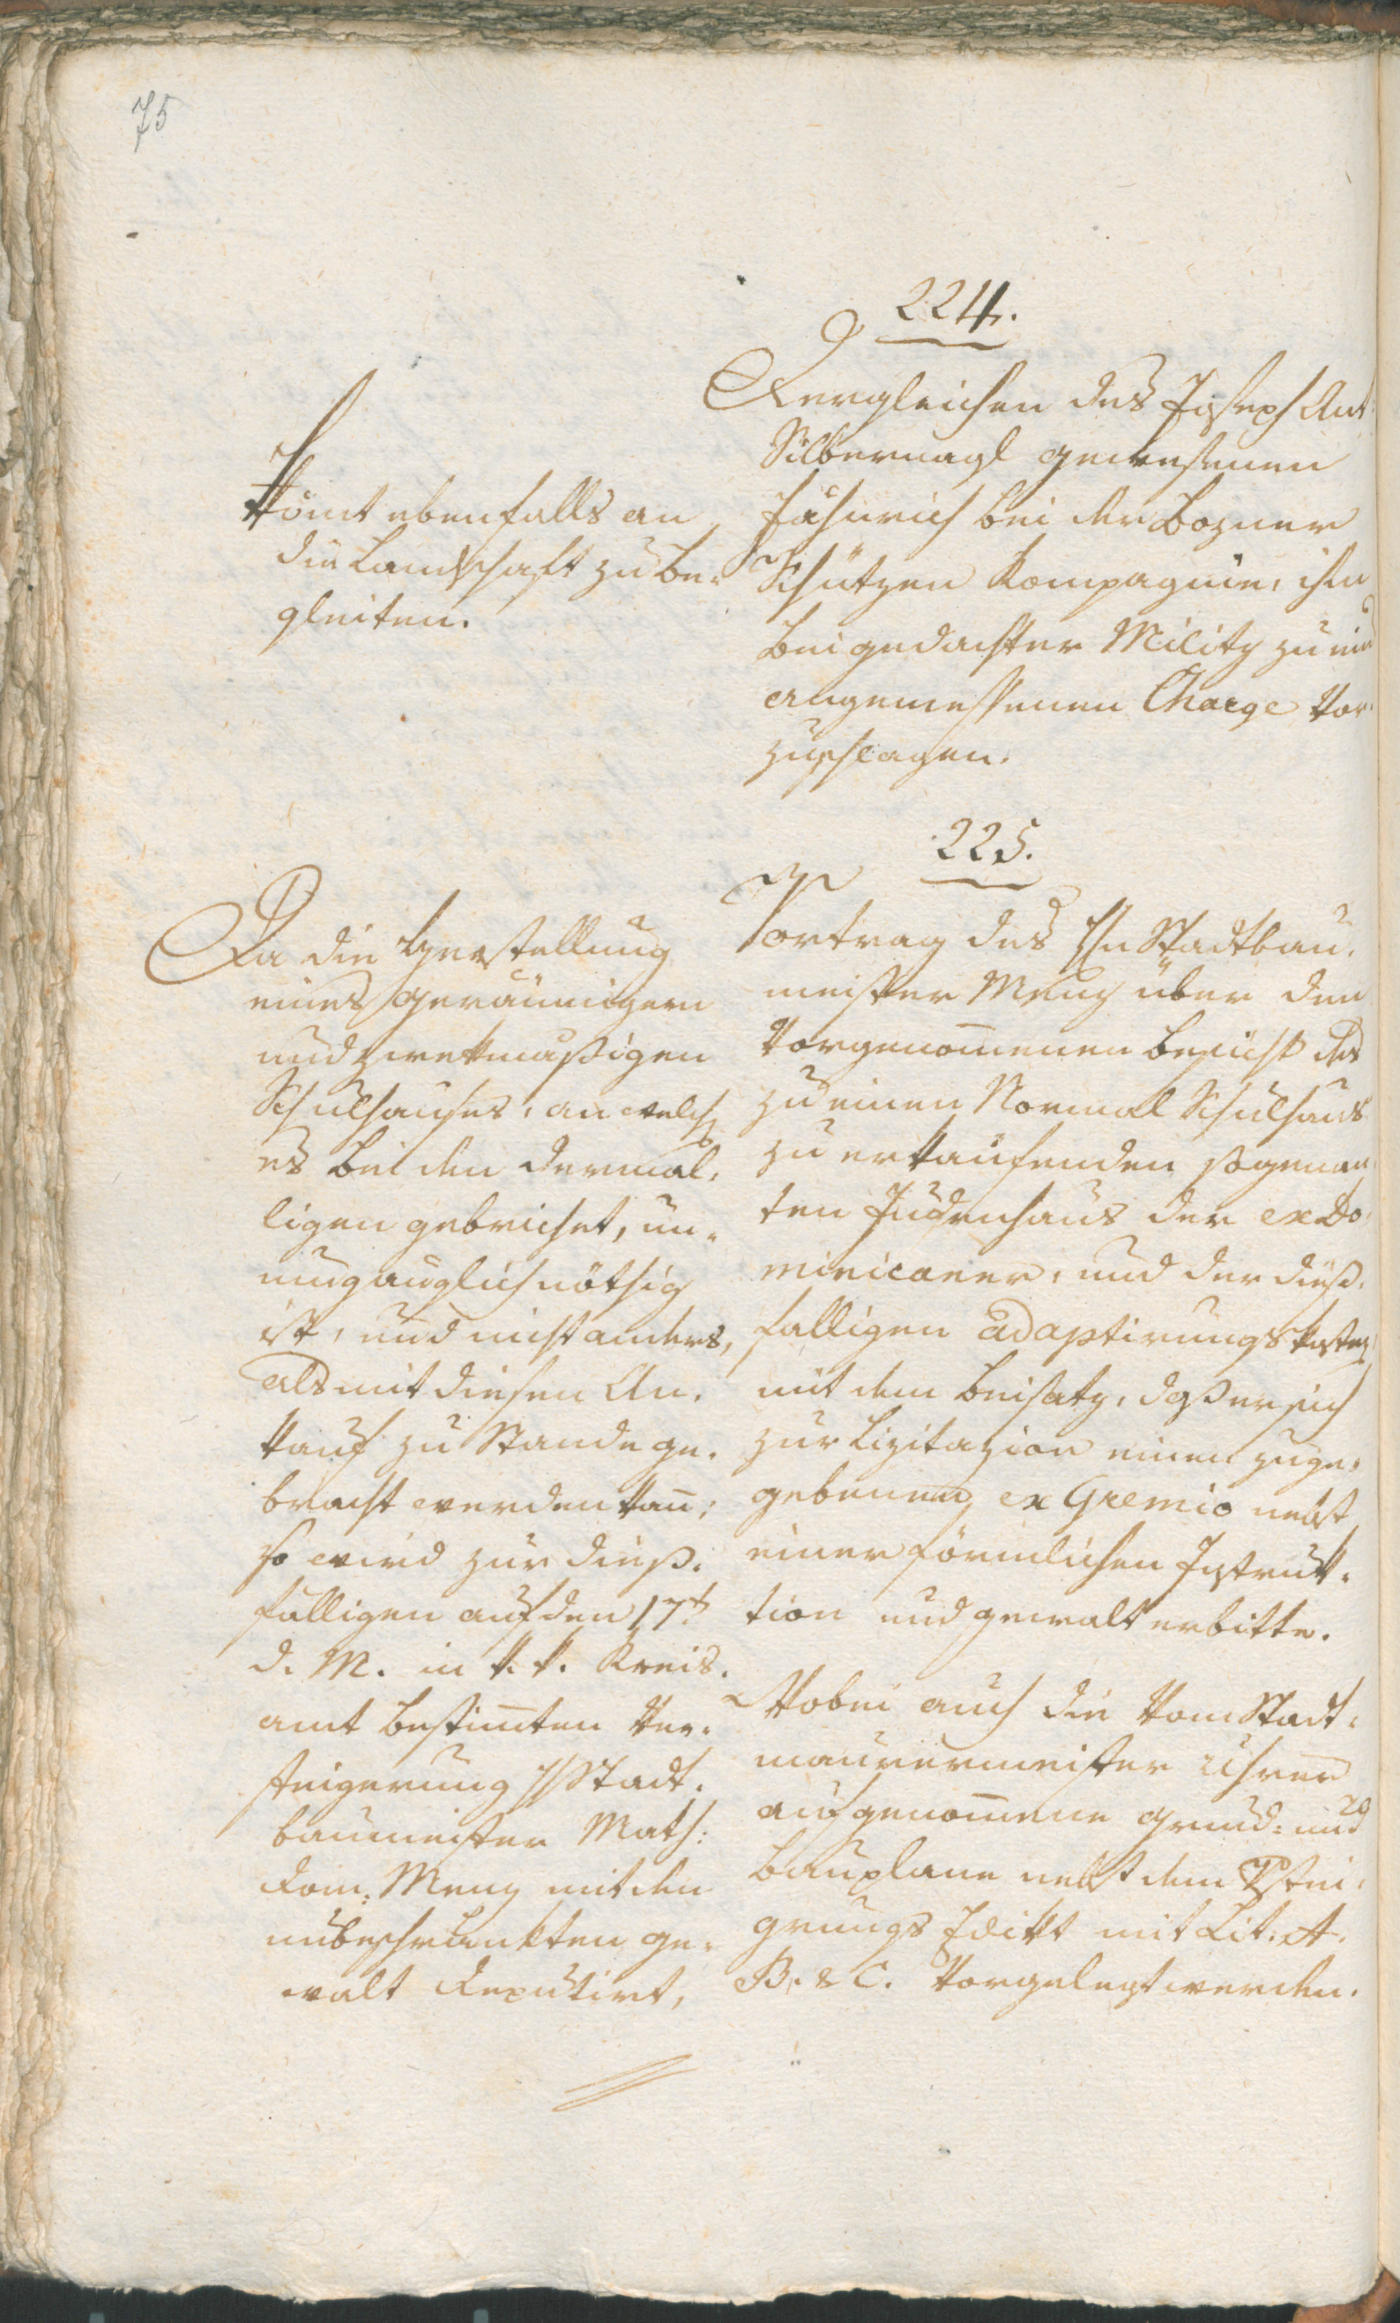 75
224.
Dergleichen des Joseph Ant:
Silbernagl gewesenen
Fähnrich bei der Bozner
Schützen Kompagnie, ihn
bei gedachter Militz zu ein
angemessenen Charge vor-
zuschlagen.
Kömt ebenfalls an
die Landschaft zu be-
gleiten.
225.
Vortrag des Hn Stadtbau-
meister Menz über den
vorgenom̄enen besicht des
zu einen Normal Schulhaus
zu erkaufenden sogenan-
ten Judenhaus der exDo-
minicaner, und der dieß-
falligen Adaptirungs kosten
mit dem Beisatz, daß er sich
zur Lizitazion einen zuge-
gebenen ex Gremio nebst
einer förmlichen Instruk-
tion und gewalt erbitte.
Wobei auch die vom Stadt-
maurermeister
aufgenom̄ene Grund- und
Bauplane nebst dem Vstei-
grungs Edikt mit Lit: A.
B. & C. vorgelegt werden.
Da die Herstellung
eines geräumigern
und zwekmäßigen
Schulhauses, an welch
es bei den dermal-
ligen gebrichet, un-
umgänglich nöthig
ist, und nicht anders,
als mit diesen An-
kauf zu Stande ge-
bracht werden kan̄;
so wird zur dieß-
fälligen auf den 17t
d. M. in k. k. Kreis-
amt bestim̄ten Ver-
steigerung H Stadt-
baumeister Math:
Dom: Menz mit den
unbeschränkten ge-
walt Deputirt,